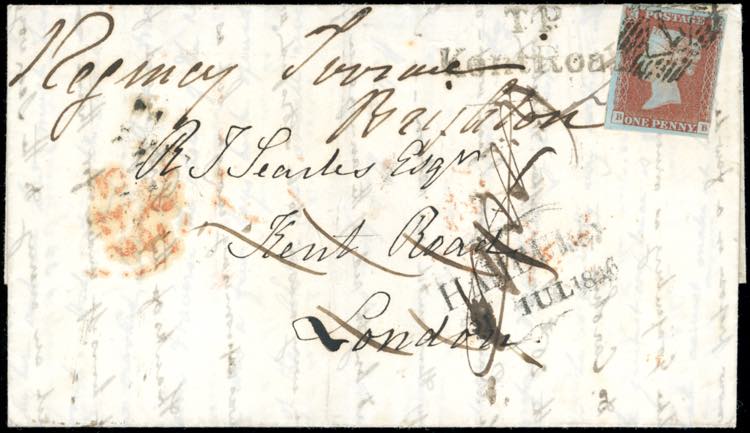 T.P
Kent Road
POSTAGE
ONE PENNY
B B
Regency Terrace
Brighton
R J Searles Esqr
Kent Road
London
JUL 1846